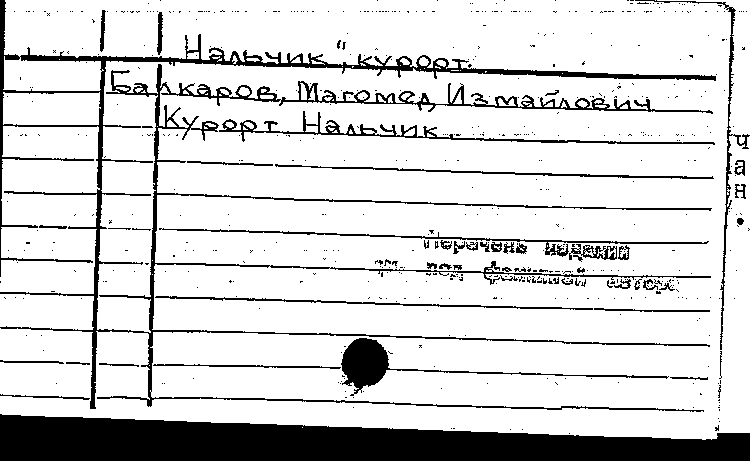 „Нальчик“, курорт.
Балкаров, Магомед Измайлович
Курорт Нальчик.
Перечень изданий
см. под фамилией автора
ч
а
н
.